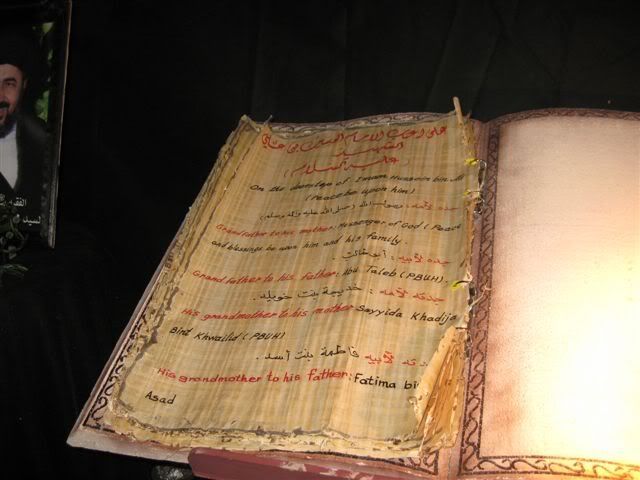 على ارحب الامام الحسين بن علي
الشهيد
(عليه السلام)
On the demlage of Imam Hussein bin Ali
(Peace be upon him)
جده لأمه: رسول الله (صلى الله عليه وآله وسلم)
Grandfather to his mother: Messenger of God (Peace
and blessings be upon him and his family.
جده لأبيه: أبو طالب.
Grand father to his father: Abu Taleb (PBUH).
جدته لأمه: خديجة بنت خويلد.
His grandmother to his mother Sayyida Khadija
Bint Khwailid (PBUH)
جدته لأبيه فاطمة بنت أسد.
His grandmother to his father: Fatima bi
Asad
الفقيه
السيد